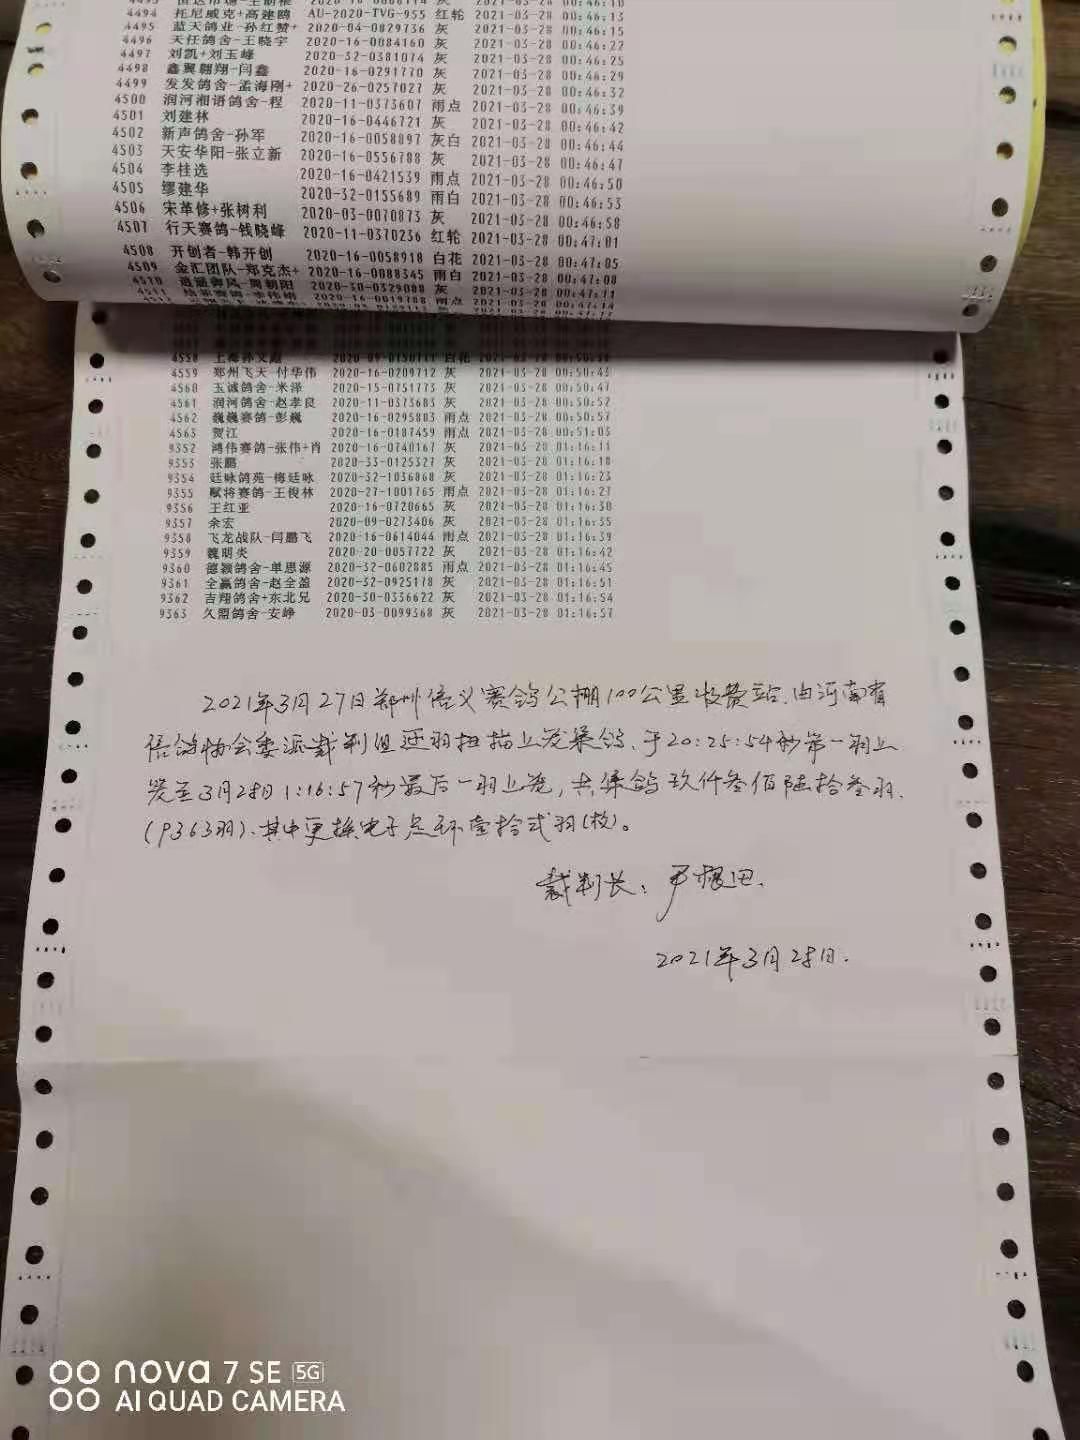 4494 托尼威克+高建鸥 AU-2020-TVG-955 红轮 2021-03-28 00:46:13
4495 蓝天鸽业-孙红赞+ 2020-04-0829736 灰 2021-03-28 00:46:15
4496 天任鸽舍-王晓宇 2020-16-0084160 灰 2021-03-28 00:46:22
4497 刘凯+刘玉峰 2020-32-0381074 灰 2021-03-28 00:46:25
4498 鑫翼翱翔-闫鑫 2020-16-0291770 灰 2021-03-28 00:46:29
4499 发发鸽舍-孟海刚+ 2020-26-0257027 灰 2021-03-28 00:46:32
4500 润河湘语鸽舍-程 2020-11-0373607 雨点 2021-03-28 00:46:39
4501 刘建林 2020-16-0446721 灰 2021-03-28 00:46:42
4502 新声鸽舍-孙军 2020-16-0058897 灰白 2021-03-28 00:46:44
4503 天安华阳-张立新 2020-16-0556788 灰 2021-03-28 00:46:47
4504 李桂选 2020-16-0421539 雨点 2021-03-28 00:46:50
4505 缪建华 2020-32-0155689 雨白 2021-03-28 00:46:53
4506 宋革修+张树利 2020-03-0070873 灰 2021-03-28 00:46:58
4507 行天赛鸽-钱晓峰 2020-11-0370236 红轮 2021-03-28 00:47:01
4508 开创者-韩开创 2020-16-0058918 白花 2021-03-28 00:47:05
4509 金汇团队-郑克杰+ 2020-16-0088345 雨白 2021-03-28 00:47:08
4510 逍遥御风-周朝阳 2020-30-0329088 灰 2021-03-28 00:47:11
4558 上海孙文超 2020-09-0150711 白花 2021-03-28
4559 郑州飞天-付华伟 2020-16-0209712 灰 2021-03-28 00:50:43
4560 玉诚鸽舍-米泽 2020-15-0751773 灰 2021-03-28 00:50:47
4561 润河鸽舍-赵孝良 2020-11-0373683 灰 2021-03-28 00:50:52
4562 巍巍赛鸽-彭巍 2020-16-0295883 雨点 2021-03-28 00:50:57
4563 贺江 2020-16-0187459 雨点 2021-03-28 00:51:03
9352 鸿伟赛鸽-张伟+肖 2020-16-0740167 灰 2021-03-28 01:16:11
9353 张鹏 2020-33-0125327 灰 2021-03-28 01:16:18
9354 廷咏鸽苑-梅廷咏 2020-32-1036868 灰 2021-03-28 01:16:23
9355 赋将赛鸽-王俊林 2020-27-1001765 雨点 2021-03-28 01:16:27
9356 王红亚 2020-16-0720665 灰 2021-03-28 01:16:30
9357 余宏 2020-09-0273406 灰 2021-03-28 01:16:35
9358 飞龙战队-闫鹏飞 2020-16-0614044 雨点 2021-03-28 01:16:39
9359 魏明炎 2020-20-0057722 灰 2021-03-28 01:16:42
9360 德颖鸽舍-单思源 2020-32-0602885 雨点 2021-03-28 01:16:45
9361 全赢鸽舍-赵全盈 2020-32-0925178 灰 2021-03-28 01:16:51
9362 吉翔鸽舍+东北兄 2020-30-0336622 灰 2021-03-28 01:16:54
9363 久盟鸽舍-安峥 2020-03-0099368 灰 2021-03-28 01:16:57
2021年3月27日郑州信义赛鸽公棚100公里收费站,由河南省
信鸽协会委派裁判组逐羽扫描上笼集鸽,于20:25:54秒第一羽上
笼至3月28日1:16:57秒最后一羽上笼,共集鸽玖仟叁佰陆拾叁羽.
(9363羽)、其中更换电子足环壹拾弍羽(枚)。
裁判长:尹根田.
2021年3月28日.
nova 7 SE 5G
AI QUAD CAMERA